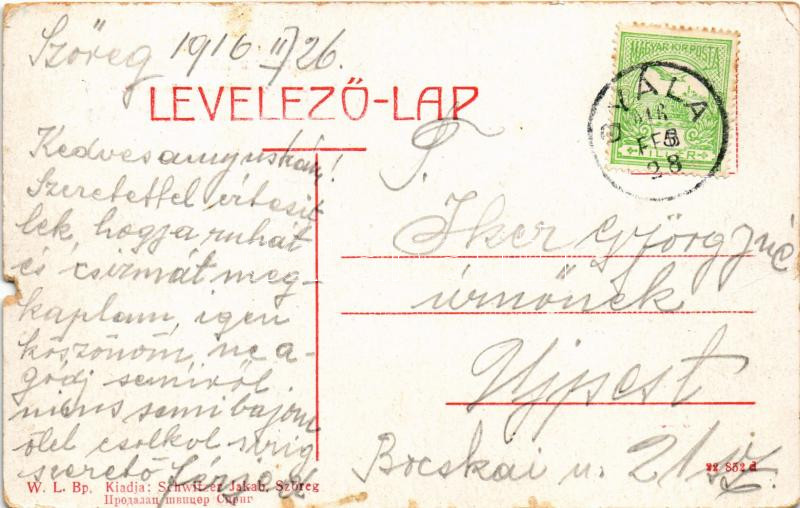 Szőreg 1916 II/26.
LEVELEZŐ-LAP
MAGYAR KIR. POSTA
FILLÉR
UVALA
FEB
28
Kedves anyuskám!
Szeretettel értesit
lek, hogy a ruhát
és csizmát meg-
kaptam, igen
köszönöm, ne a-
gódj semiröl
nincs semi bajom
ölel csolkol
szerető
T.
Iker Györgyné
úrnőnek
Ujpest
Bocskai u. 21 sz
22 852 d
W. L. Bp. Kiadja: Schwitzer Jakab, Szöreg
Продалац швицер Сириг